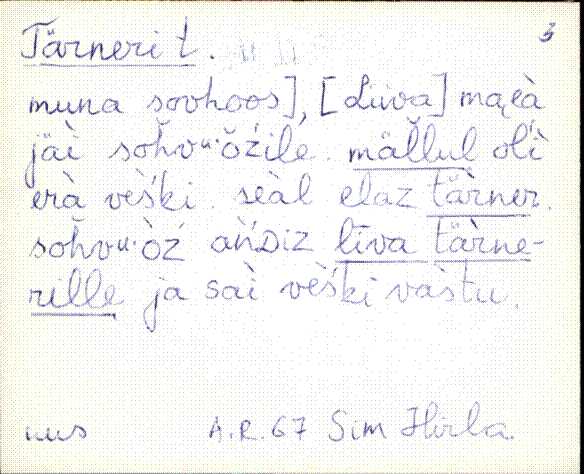 3
Tärneri t.
muna sovhoos], [Liiva] maɛà
jäì sohvu·òźilè. mällul olì
erà vèški. seàl elaz tärner.
sohvu·òź añDiz līva tärne-
rille ja saì vèški vàstu.
nus A.R. 67 Sim Hirla